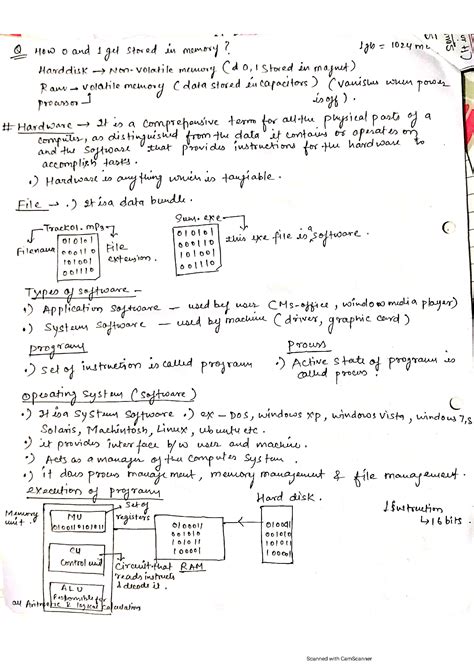 Q How 0 and 1 get stored in memory?
1gb = 1024 mb
Harddisk → Non-volatile memory (d 0,1 Stored in magnet)
Ram → volatile memory (data stored in capacitors) (vanishes when power is off).
# Hardware → It is a comprehensive term for all the physical parts of a
computer, as distinguished from the data it contains or operates on
and the software that provides instructions for the hardware to
accomplish tasks.
•) Hardware is anything which is
File → •) It is a data bundle.
Track01.mp3
Sum.exe
Filename
010101
000110
101001
001110
File extension.
010101
000110
101001
001110
this exe file is a software.
Types of software -
•) Application software - used by user (Ms-office, window media player)
•) System software - used by machine (driver, graphic card)
program
process
•) set of instruction is called program
•) Active state of program is
called process.
Operating System (software)
•) It is a System software •) ex - DOS, windows xp, windows vista, windows 7,8
Solaris, Machintosh, Linux, ubuntu etc.
•) it provides interface b/w user and machine.
•) Acts as a manager of the computer system.
•) it does process management, memory management & file management.
execution of program
Hard disk.
Memory unit.
MU
010011010101
Set of registers
CU
Control unit
Circuit that
reads instruct
& decode it.
RAM
1 Instruction
↳ 16 bits.
ALU
Responsible for
all Arithmetic & logical Calculation
Scanned with CamScanner